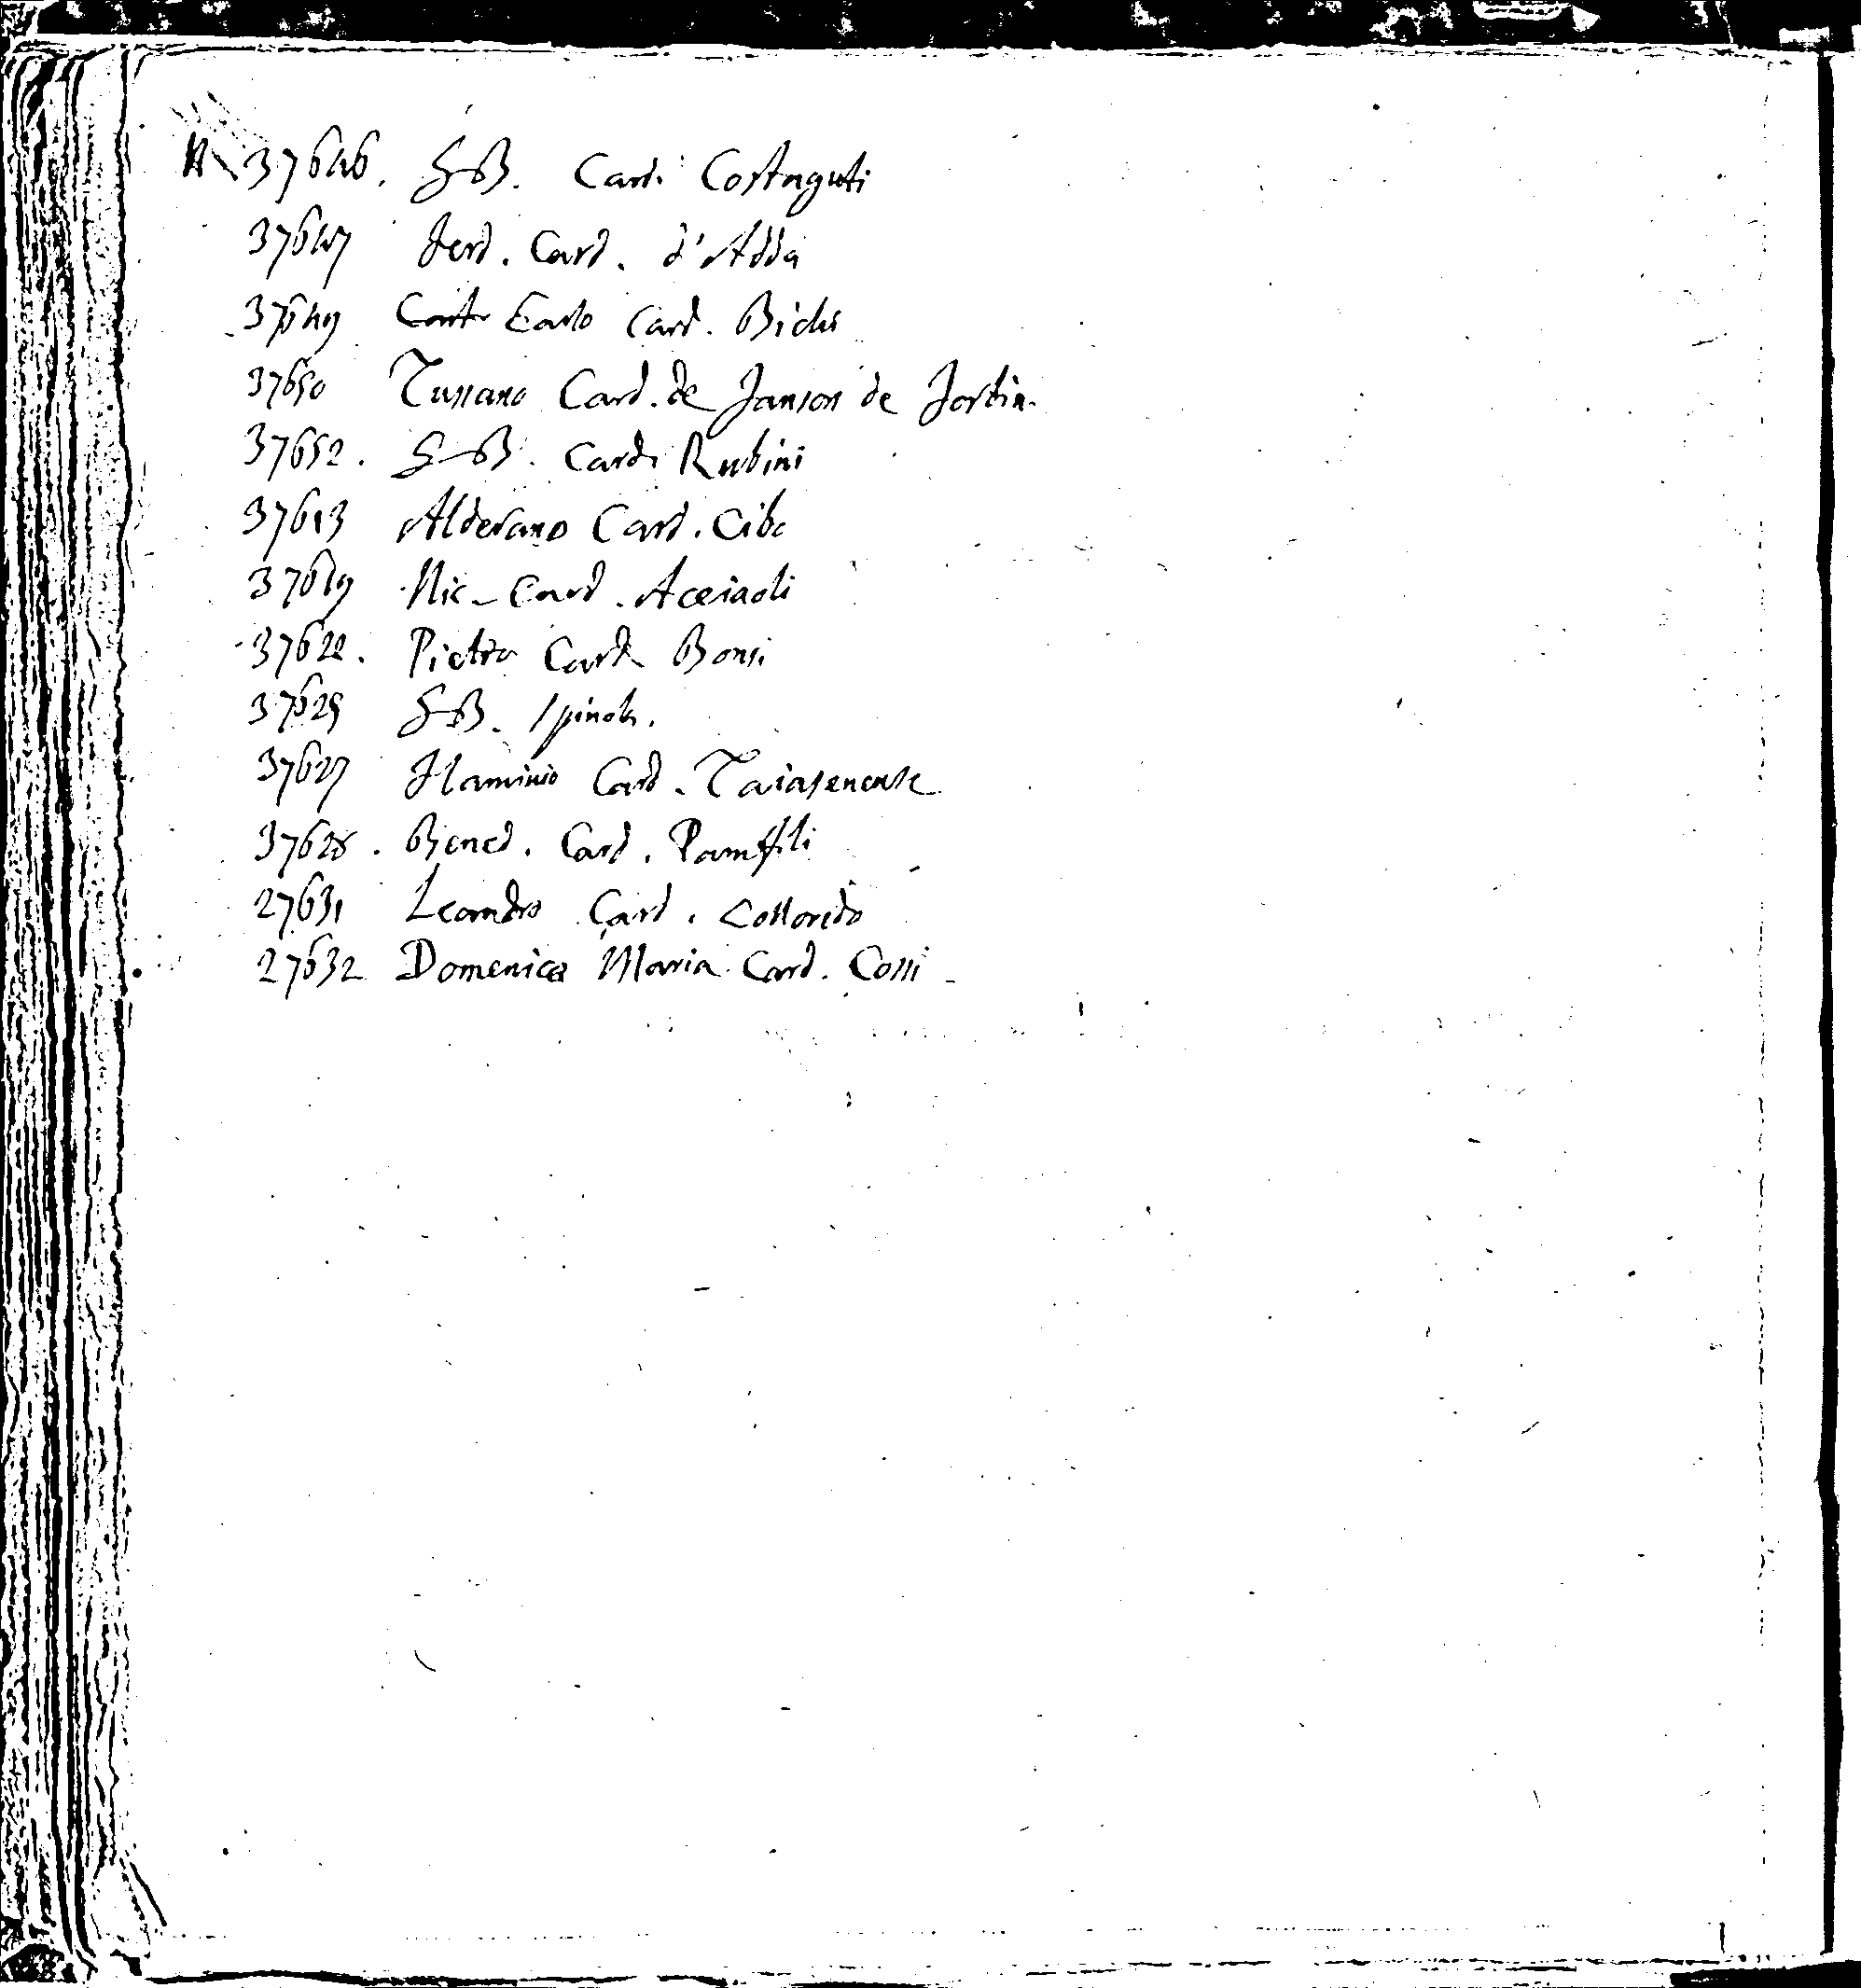 37646. GB. Card. Costaguti
37647 Ferd. Card. d'Adda
37649 Carlo Card. Bichi
37650 Tussano Card. de Janson de Forbin.
37652. GB. Card. Rubini
37613 Alderano Card. Cibo
37619 Nic. Card. Acciaoli
37622. Pietro Card. Bonsi
37625 GB. Spinola.
37627 Flaminio Card.
37628. Bened. Card. Pamfili
27631 Leandro Card. Colloredo
27632 Domenico Maria Card. Corsi